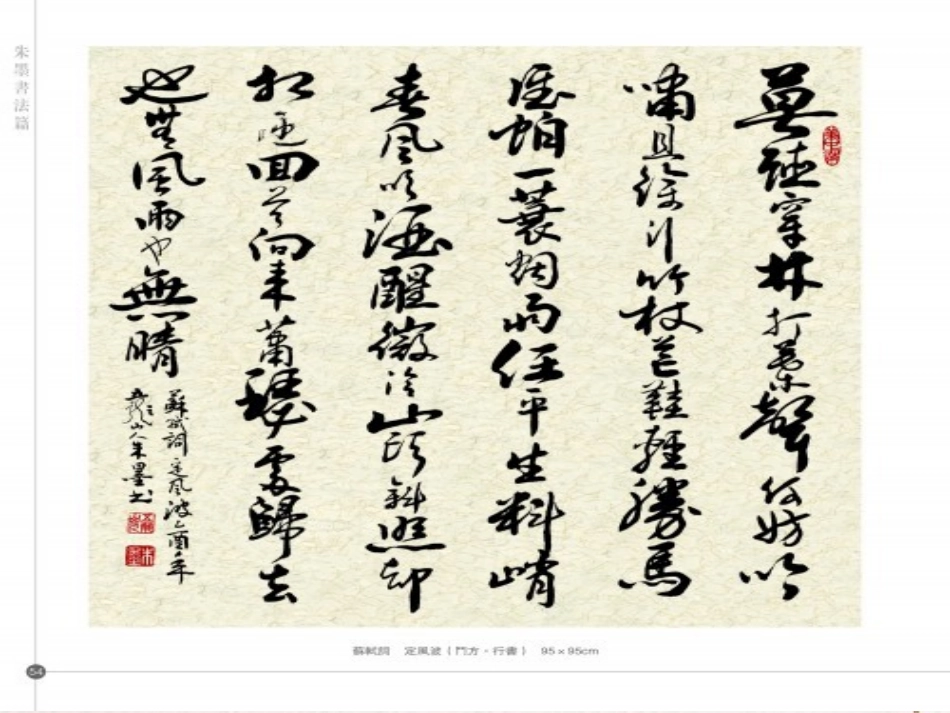 朱墨書法篇
莫聽穿林打葉聲何妨吟
嘯且徐行竹杖芒鞋輕勝馬
誰怕一蓑烟雨任平生料峭
春風吹酒醒微冷山頭斜照却
相迎回首向來蕭瑟處歸去
也無風雨也無晴
蘇軾詞定風波乙酉年
山人朱墨書
蘇軾詞 定風波（鬥方・行書） 95×95cm
54